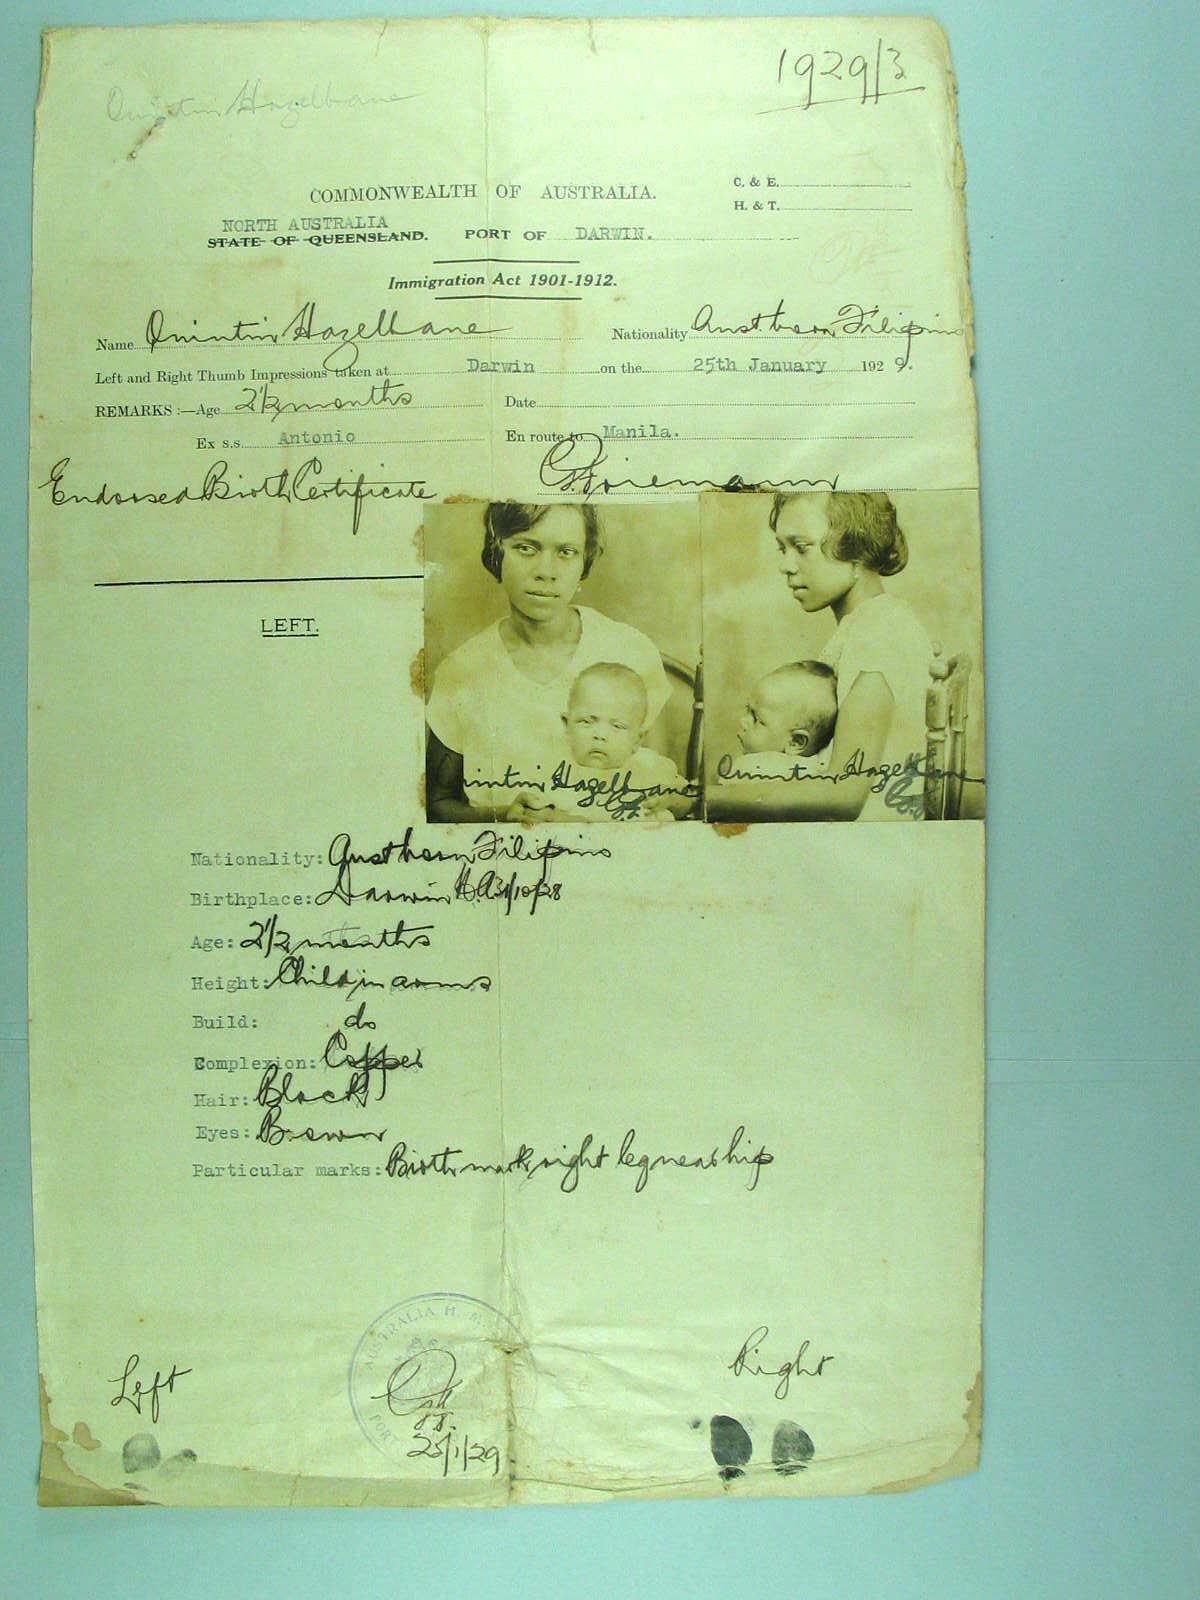 1929/3
Quintin Hazelbane
COMMONWEALTH OF AUSTRALIA.
C. & E.
H. & T.
NORTH AUSTRALIA
STATE OF QUEENSLAND. PORT OF DARWIN.
Immigration Act 1901-1912.
Name Quintin Hazelbane Nationality Aust born Filipino
Left and Right Thumb Impressions taken at Darwin on the 25th January 1929.
REMARKS :—Age 2½ months Date
Ex s.s. Antonio En route to Manila.
Endorsed Birth Certificate
LEFT.
Quintin Hazelbane
Quintin Hazelbane
Nationality: Aust born Filipino
Birthplace: Darwin N.A. 31/10/28
Age: 2½ months
Height: Child in arms
Build: do
Complexion: Copper
Hair: Black
Eyes: Brown
Particular marks: Birth mark right leg near hip
AUSTRALIA
PORT
Left
Right
25/1/29